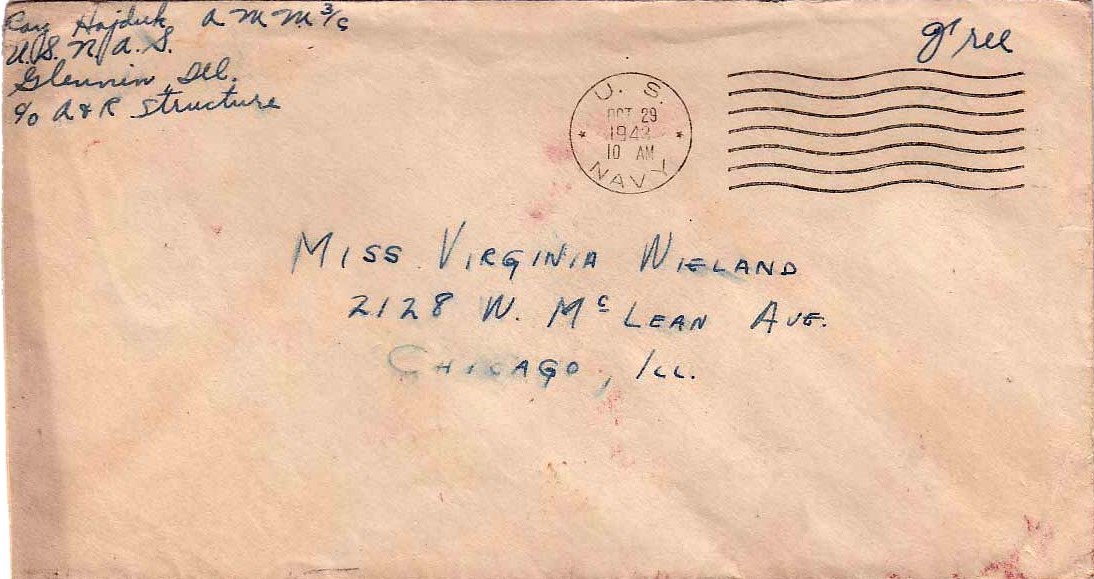 Ray Hajduk, AMM 3/c
U.S. N.A.S.
Glennin, Ill.
c/o A & R Structure
Free
U. S.
OCT 29
1943
10 AM
NAVY
MISS VIRGINIA WIELAND
2128 W. McLEAN AVE.
CHICAGO, ILL.